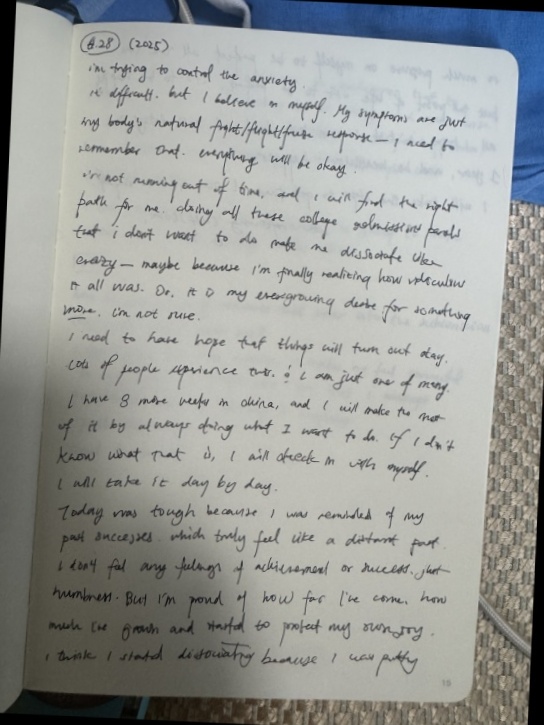 8.28 (2025)
i'm trying to control the anxiety.
it's difficult. but I believe in myself. My symptoms are just
my body's natural fight/flight/freeze response — I need to
remember that. everything will be okay.
i'm not running out of time, and I will find the right
path for me. doing all these college admissions panels
that i don't want to do make me dissociate like
crazy — maybe because i'm finally realizing how ridiculous
it all was. Or, it is my evergrowing desire for something
more. i'm not sure.
I need to have hope that things will turn out okay.
Lots of people experience this. & I am just one of many.
I have 8 more weeks in china, and I will make the most
of it by always doing what I want to do. If I don't
know what that is, I will check in with myself.
I will take it day by day.
Today was tough because I was reminded of my
past successes. which truly feel like a distant past.
I don't feel any feelings of achievement or success. just
numbness. But I'm proud of how far I've come. how
much I've grown and started to protect my own joy.
i think I started dissociating because I was putting
19